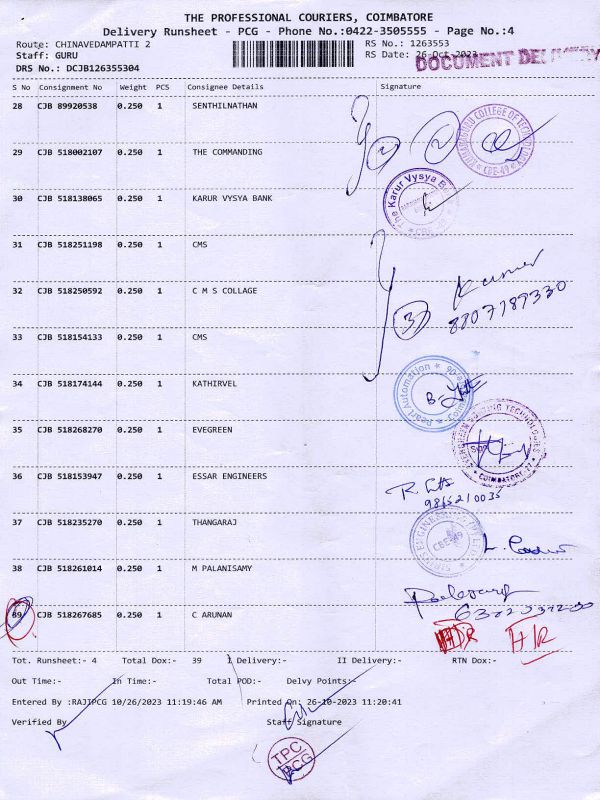 THE PROFESSIONAL COURIERS, COIMBATORE
Delivery Runsheet - PCG - Phone No.:0422-3505555 - Page No.:4
Route: CHINAVEDAMPATTI 2
Staff: GURU
DRS No.: DCJB126355304
RS No.: 1263553
RS Date: 26-Oct-2023
DOCUMENT DELIVERY
S No Consignment No Weight PCS Consignee Details Signature
28 CJB 89920538 0.250 1 SENTHILNATHAN
29 CJB 518002107 0.250 1 THE COMMANDING
2 2
COLLEGE OF TECHNOLOGY
CBE-49
30 CJB 518138065 0.250 1 KARUR VYSYA BANK
The Karur Vysya
31 CJB 518251198 0.250 1 CMS
32 CJB 518250592 0.250 1 C M S COLLAGE
3
Kumar
8807189330
33 CJB 518154133 0.250 1 CMS
34 CJB 518174144 0.250 1 KATHIRVEL
Pearl Automation
35 CJB 518268270 0.250 1 EVEGREEN
TECHNOLOGIES
COIMBATORE
36 CJB 518153947 0.250 1 ESSAR ENGINEERS
9865210035
37 CJB 518235270 0.250 1 THANGARAJ
CBE-49
38 CJB 518261014 0.250 1 M PALANISAMY
39 CJB 518267685 0.250 1 C ARUNAN
HR
Tot. Runsheet:- 4 Total Dox:- 39 I Delivery:- II Delivery:- RTN Dox:-
Out Time:- In Time:- Total POD:- Delvy Points:-
Entered By :RAJIPCG 10/26/2023 11:19:46 AM Printed On: 26-10-2023 11:20:41
Verified By Staff Signature
TPC
PCG